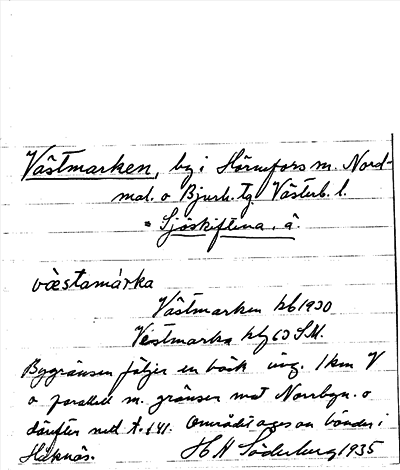 Västmarken, by i Hörnefors sn. Nord-
mal. o Bjurh. tg Västerb. l.
= Sjöskiftena, å.
vä̀stamárka
Västmarken kb 1930
Vestmarka kbg 63 S.M.
Bygränsen följer en bäck ung. 1 km V
o parallell m. gränsen mot Norrbyn. o
därefter ned t. 141. Området äges av bönder i
Häknäs. H H Söderburg 1935